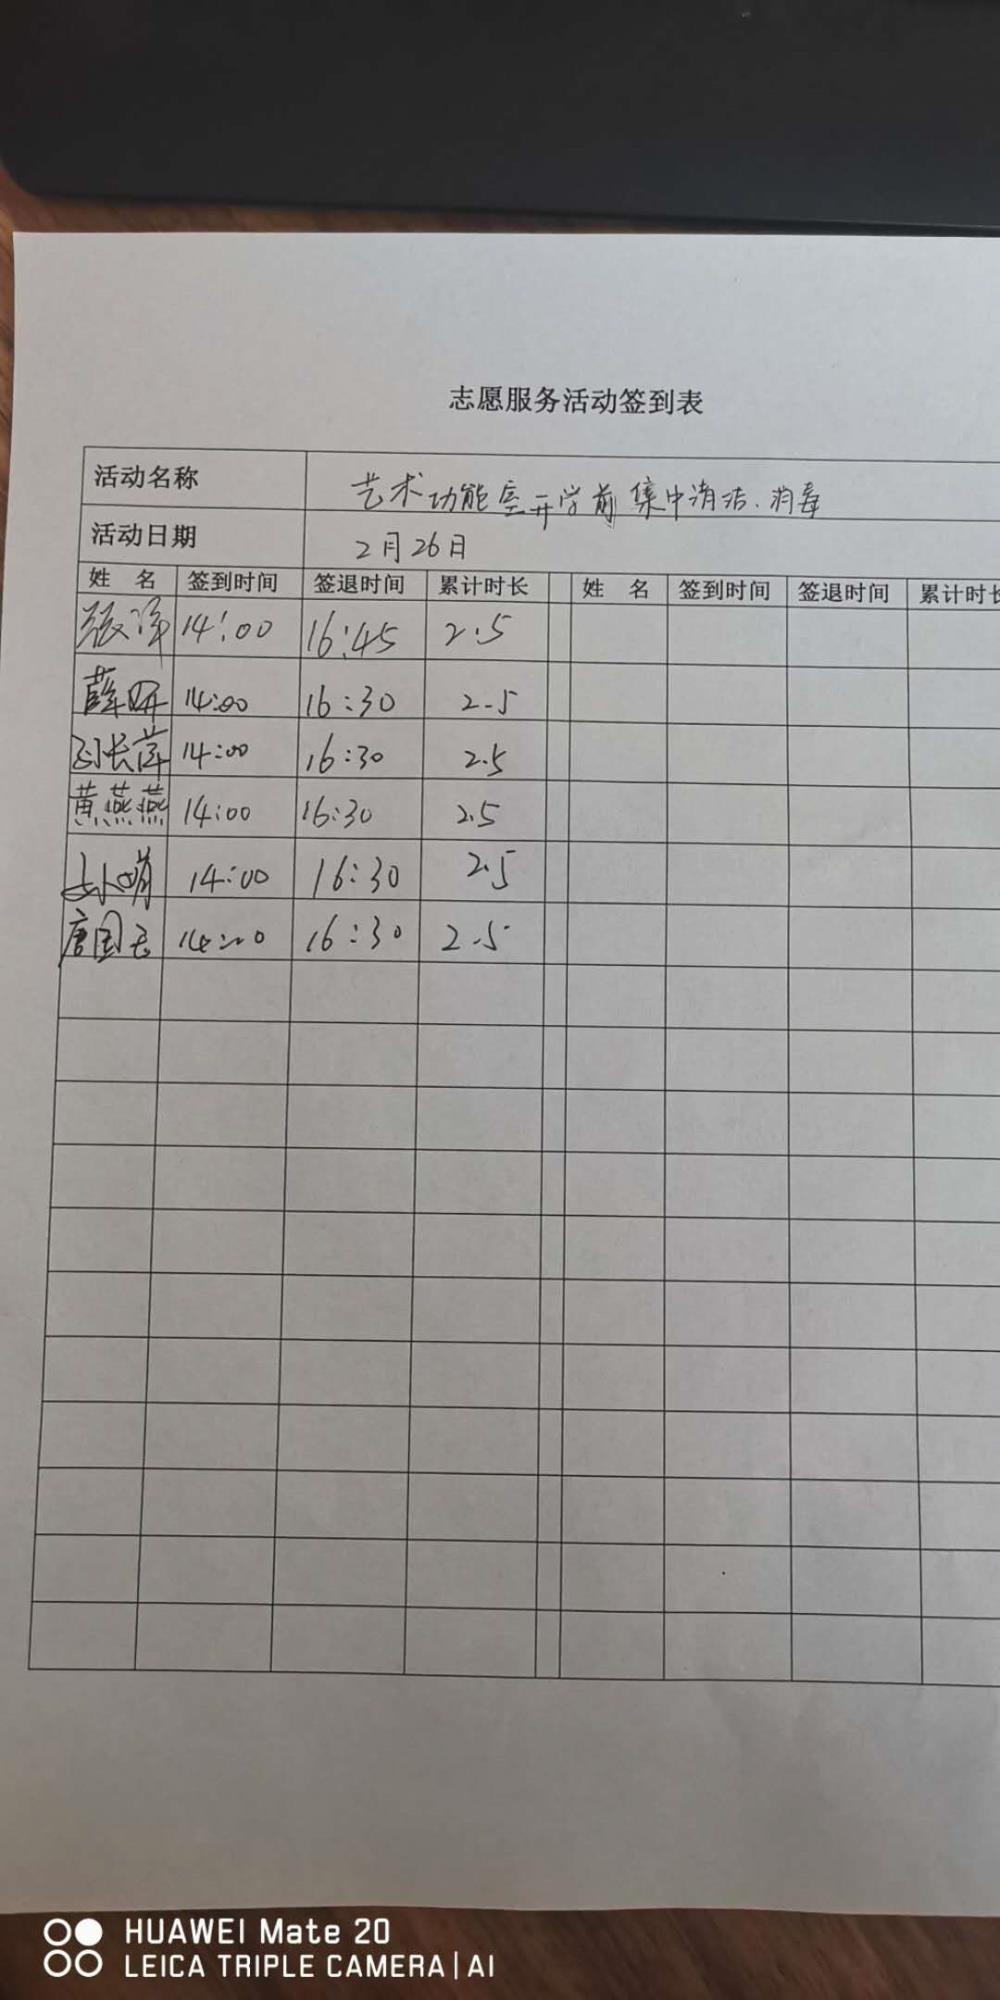 志愿服务活动签到表
活动名称 艺术功能室开学前集中清洁、消毒
活动日期 2月26日
姓 名 签到时间 签退时间 累计时长 姓 名 签到时间 签退时间 累计时长
张萍 14:00 16:45 2.5
薛妍 14:00 16:30 2.5
刘长萍 14:00 16:30 2.5
黄燕燕 14:00 16:30 2.5
14:00 16:30 2.5
唐国 14:00 16:30 2.5
HUAWEI Mate 20
LEICA TRIPLE CAMERA | AI